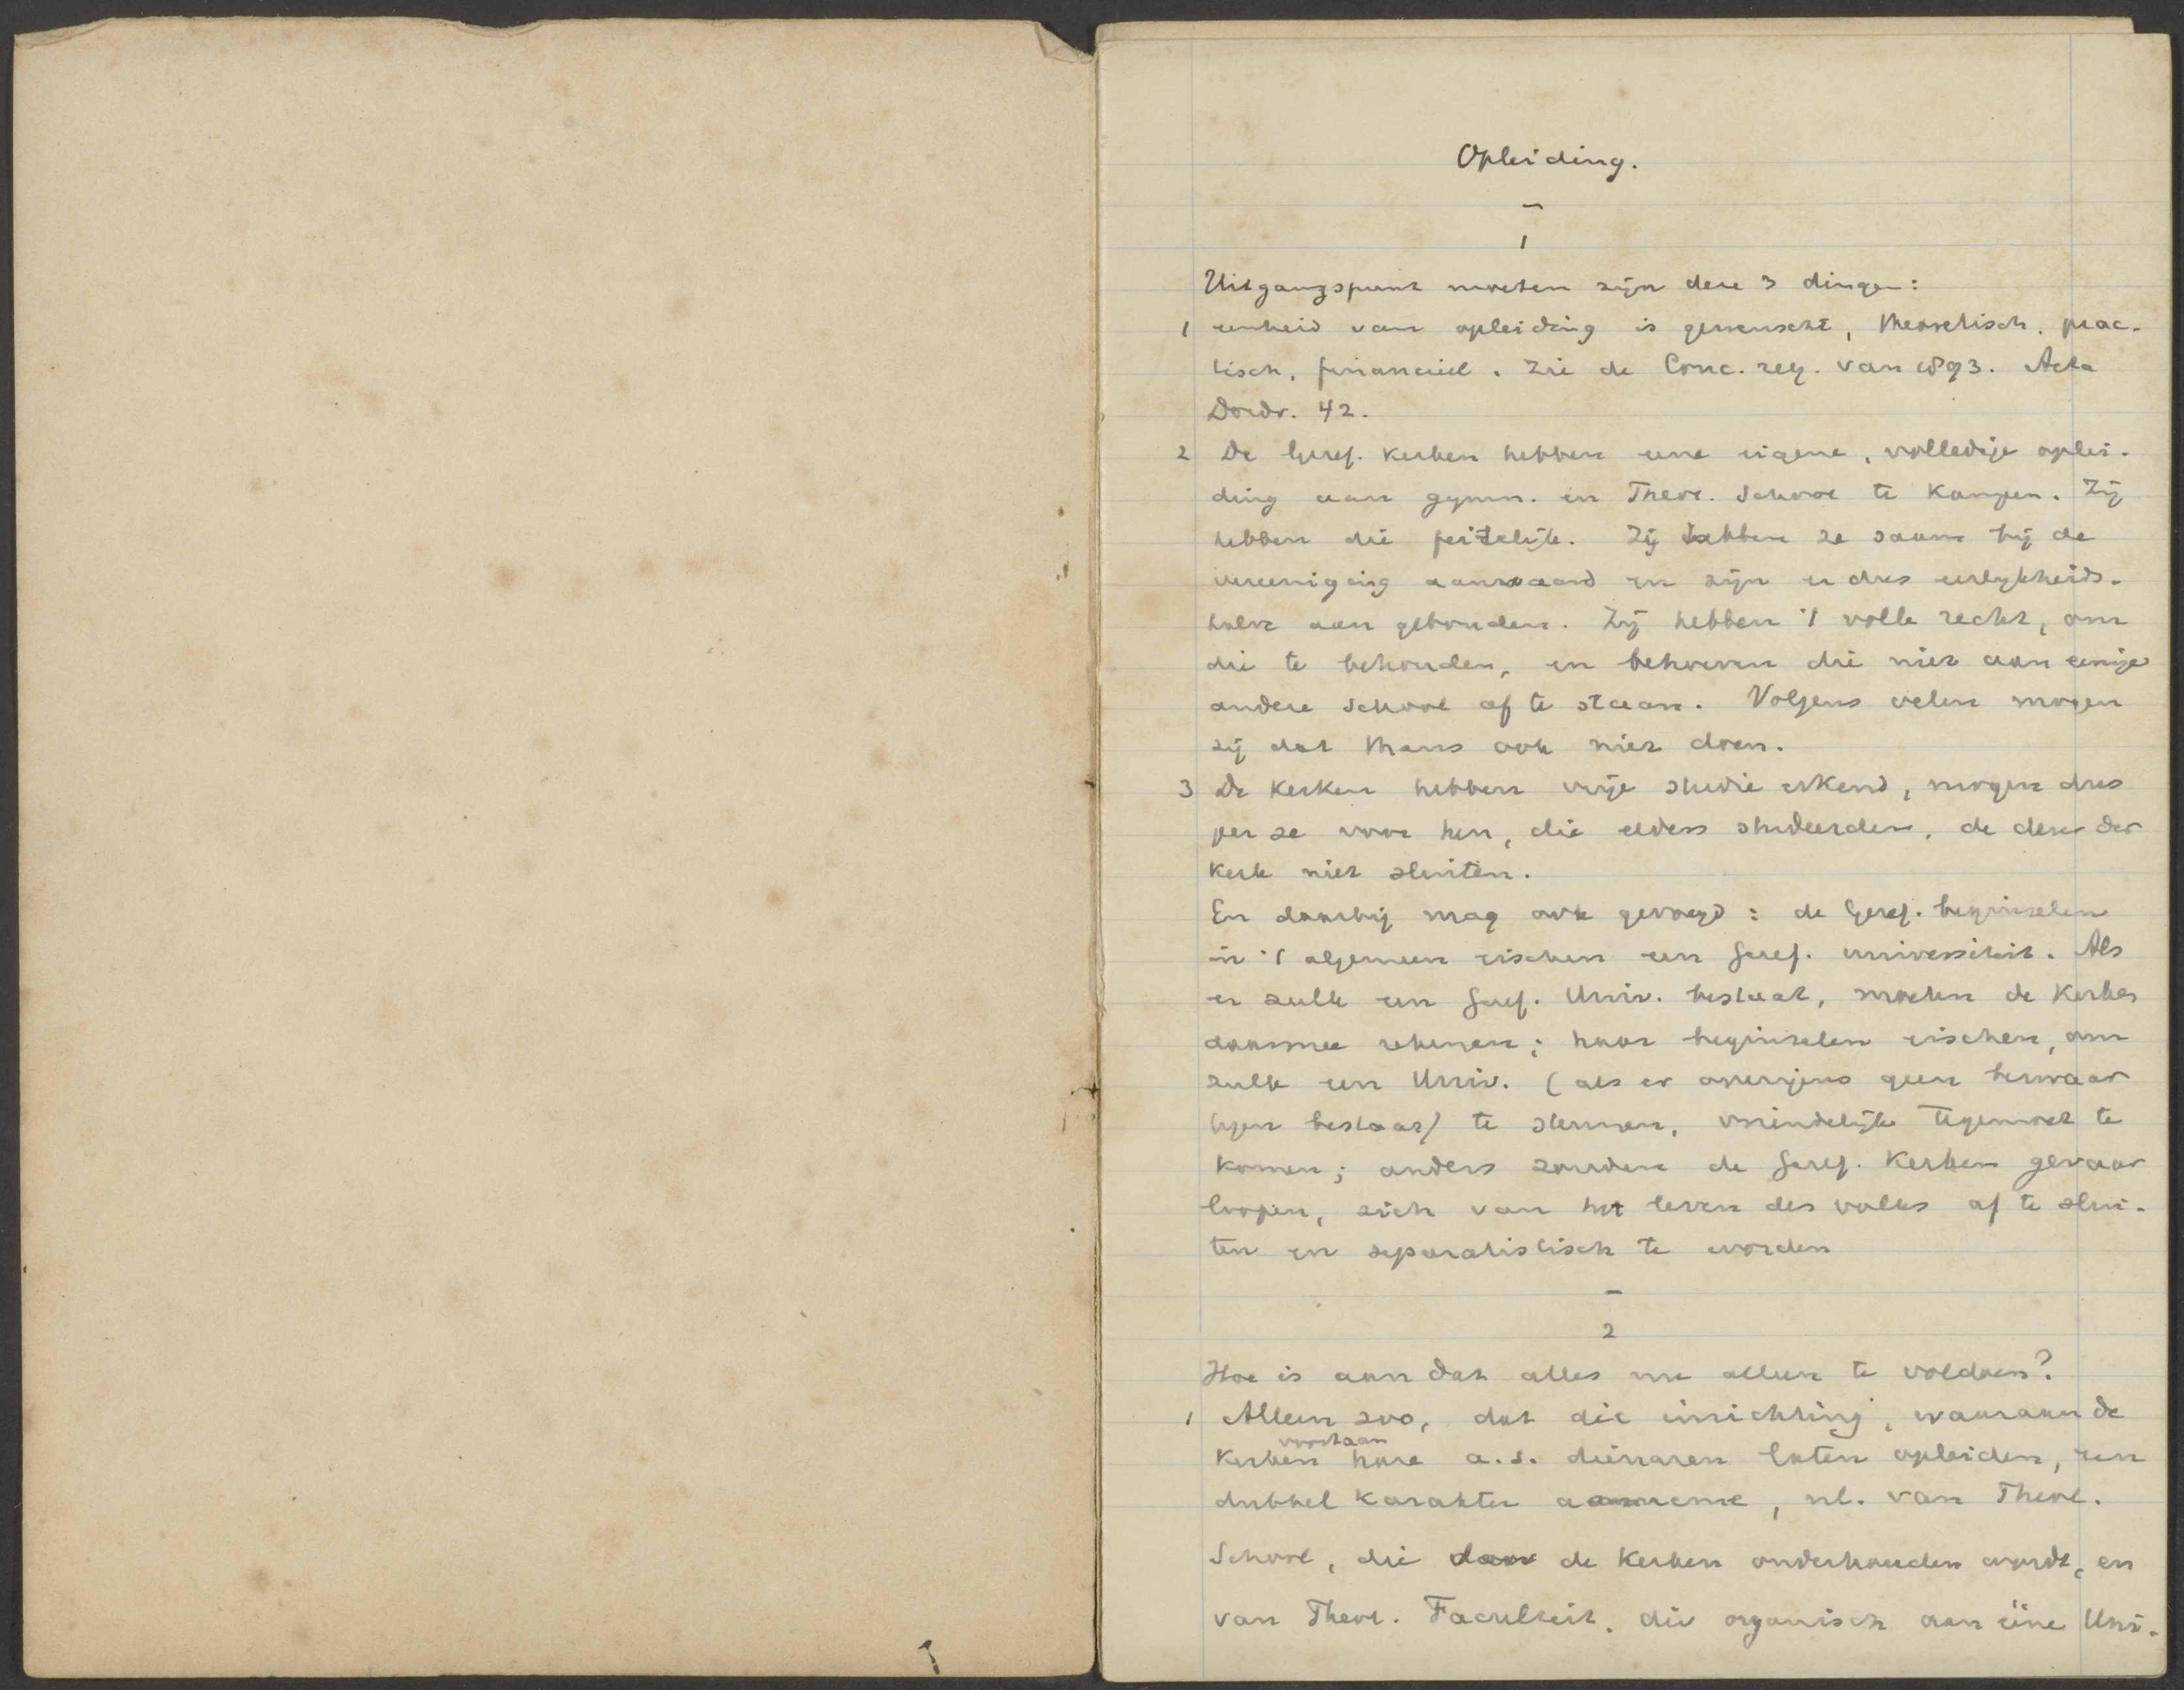 Opleiding.
–
1
Uitgangspunt moeten zijn deze 3 dingen:
1 eenheid van opleiding is gewenscht, theoretisch, prac-
tisch, financieel. Zie de Conc. reg. van 1893. Acta
Dordr. 42.
2 De Geref. kerken hebben eene eigene, volledige oplei-
ding aan gymn. en Theol. School te Kampen. Zij
hebben die feitelijk. Zij hebben ze saam bij de
vereeniging aanvaard en zijn er dus eerlijkheids-
halve aan gebonden. Zij hebben 't volle recht, om
die te behouden, en behoeven die niet aan eenige
andere school af te staan. Volgens velen mogen
zij dat thans ook niet doen.
3 De Kerken hebben vrije studie erkend, mogen dus
per se voor hen, die elders studeerden, de deur der
kerk niet sluiten.
En daarbij mag ook gevoegd: de Geref. beginselen
in 't algemeen eischen een Geref. universiteit. Als
er zulk een Geref. Univ. bestaat, moeten de Kerken
daarmee rekenen; haar beginselen eischen, om
zulk een Univ. (als er overigens geen bezwaar
tegen bestaat) te steunen, vriendelijk tegemoet te
komen; anders zouden de Geref. Kerken gevaar
loopen, zich van het leven des volks af te slui-
ten en separatistisch te worden
–
2
Hoe is aan dat alles nu alleen te voldoen?
1 Alleen zoo, dat die inrichting, waaraan de
voortaan
Kerken hare a.s. dienaren laten opleiden, een
dubbel karakter aanneme, nl. van Theol.
School, die door de Kerken onderhouden wordt, en
van Theol. Faculteit, die organisch aan eene Uni-